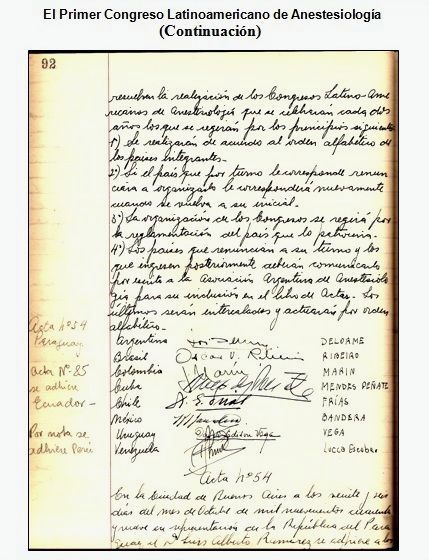 El Primer Congreso Latinoamericano de Anestesiología
(Continuación)
92
resuelven la realización de los Congresos Latino-Ame
ricanos de Anestesiología que se celebrarían cada dos
años los que se regerán por los principios siguientes
1º) Se realizarán de acuerdo al orden alfabético de
los países integrantes.-
2º) Si el país que por turno le corresponde renun
ciara a organizarlo le corresponderá nuevamente
cuando se vuelva a su inicial.-
3º) La organización de los Congresos se regirá por
la reglamentación del país que lo patrocina.-
4º) Los países que renuncian a su turno y los
que ingresen posteriormente deberán comunicarlo
por escrito a la Asociación Argentina de Anestesiolo
gía para su inclusión en el libro de Actas. Los
últimos serán intercalados y actuarán por orden
alfabético.-
Acta nº 54
Paraguay
Acta Nº 85
se adhiere
Ecuador-
Por nota se
adhiere Perú
Argentina DELORME
Brasil Oscar V. Ribeiro RIBEIRO
Colombia J. Marin MARIN
Cuba MENDES PEÑATE
Chile FRÍAS
México BANDERA
Uruguay Vega VEGA
Venezuela Lucca Escobar
Acta nº 54
En la Ciudad de Buenos Aires a los veinte y seis
días del mes de Octubre de mil novecientos cincuenta
y nueve en representación de la República del Para
guay, el Dr. Luis Alberto Ramírez se adhiere a los